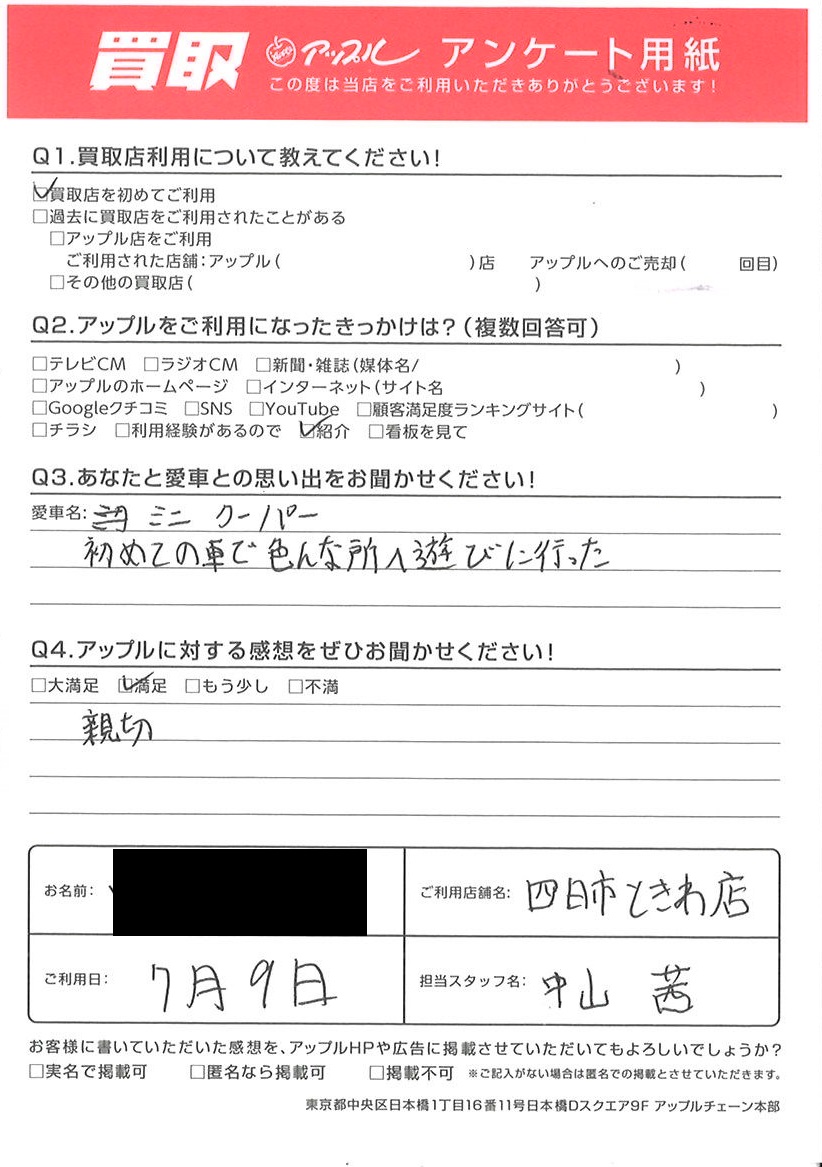 買取 アップル アンケート用紙
この度は当店をご利用いただきありがとうございます!
Q1.買取店利用について教えてください!
☑買取店を初めてご利用
□過去に買取店をご利用されたことがある
□アップル店をご利用
ご利用された店舗:アップル( )店 アップルへのご売却( 回目)
□その他の買取店( )
Q2.アップルをご利用になったきっかけは?(複数回答可)
□テレビCM □ラジオCM □新聞・雑誌(媒体名/ )
□アップルのホームページ □インターネット(サイト名 )
□Googleクチコミ □SNS □YouTube □顧客満足度ランキングサイト( )
□チラシ □利用経験があるので ☑紹介 □看板を見て
Q3.あなたと愛車との思い出をお聞かせください!
愛車名: ミニ クーパー
初めての車で色んな所へ遊びに行った
Q4.アップルに対する感想をぜひお聞かせください!
□大満足 ☑満足 □もう少し □不満
親切
お名前: ご利用店舗名: 四日市ときわ店
ご利用日: 7月9日 担当スタッフ名: 中山 茜
お客様に書いていただいた感想を、アップルHPや広告に掲載させていただいてもよろしいでしょうか?
□実名で掲載可 □匿名なら掲載可 □掲載不可 ※ご記入がない場合は匿名での掲載とさせていただきます。
東京都中央区日本橋1丁目16番11号日本橋Dスクエア9F アップルチェーン本部